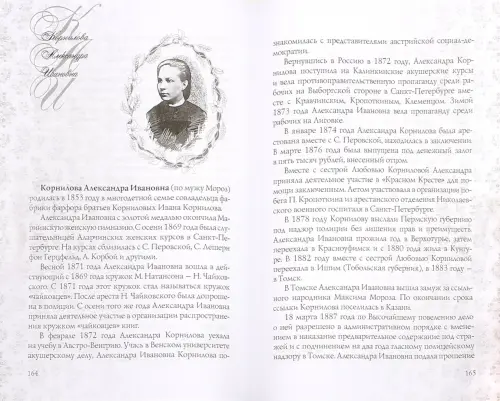 Корнилова
Александра
Ивановна
Корнилова Александра Ивановна (по мужу Мороз)
родилась в 1853 году в многодетной семье совладельца
фабрики фарфора братьев Корниловых Ивана Корнилова.
Александра Ивановна с золотой медалью окончила Ма-
риинскую женскую гимназию. С осени 1869 года была слу-
шательницей Аларчинских женских курсов в Санкт-Пе-
тербурге. На курсах сблизилась с С. Перовской, С. Лешерн
фон Герцфельд, А. Корбой и другими.
Весной 1871 года Александра Ивановна вошла в дей-
ствующий с 1869 года кружок М. Натансона — Н. Чайков-
ского. С 1871 года этот кружок стал называться кружок
«чайковцев». После ареста Н. Чайковского была допроше-
на в полиции. С осени 1871 года Александра Ивановна при-
няла деятельное участие в организации распростране-
ния кружком «чайковцев» книг.
В феврале 1872 года Александра Корнилова уехала
на учебу в Австро-Венгрию. Учась в Венском университете
акушерскому делу, Александра Ивановна Корнилова по-
164
знакомилась с представителями австрийской социал-де-
мократии.
Вернувшись в Россию в 1872 году, Александра Кор-
нилова поступила на Калинкинские акушерские курсы
и вела противоправительственную пропаганду среди ра-
бочих на Выборгской стороне в Санкт-Петербурге вме-
сте с Кравчинским, Кропоткиным, Клеменцом. Зимой
1873 года Александра Ивановна вела пропаганду среди
рабочих на Лиговке.
В январе 1874 года Александра Корнилова была аре-
стована вместе с С. Перовской, находилась в заключении.
В марте 1876 года была выпущена под денежный залог
в пять тысяч рублей, внесенный отцом.
Вместе с сестрой Любовью Корниловой Александра
приняла деятельное участие в «Красном Кресте» для по-
мощи заключенным. Летом участвовала в организации побе-
га П. Кропоткина из арестантского отделения Николаев-
ского военного госпиталя в Санкт-Петербурге.
В 1878 году Корнилову выслали в Пермскую губернию
под надзор полиции без лишения прав и преимуществ.
Александра Ивановна прожила год в Верхотурье, затем
переехала в Красноуфимск и с 1880 года жила в Кунгу-
ре. В 1882 году вместе с сестрой Любовью Корниловой
переехала в Ишим (Тобольская губерния), в 1883 году —
в Томск.
В Томске Александра Ивановна вышла замуж за ссыль-
ного народника Максима Мороза. По окончании срока
ссылки Корнилова поселилась в Казани.
18 марта 1887 года по Высочайшему повелению дело
о ней разрешено в административном порядке с вменени-
ем в наказание предварительное содержание под стра-
жей и с подчинением на два года гласному полицейскому
надзору в Томске. Александра Ивановна подала прошение
165